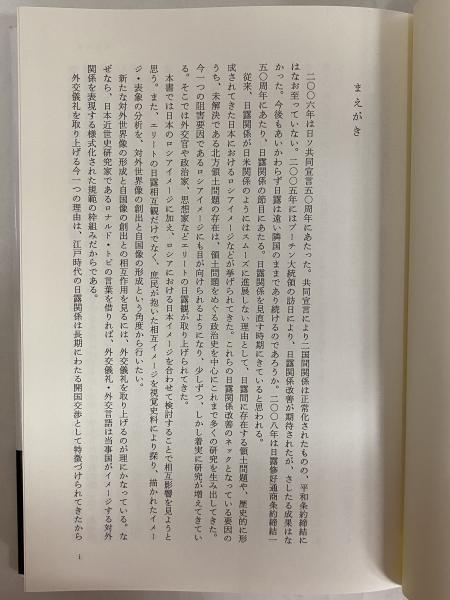 まえがき
二〇〇六年は日ソ共同宣言五〇周年にあたった。共同宣言により二国間関係は正常化されたものの、平和条約締結に
はなお至っていない。二〇〇五年にはプーチン大統領の訪日により、日露関係改善が期待されたが、さしたる成果はな
かった。今後もあいかわらず日露は遠い隣国のままであり続けるのであろうか。二〇〇八年は日露修好通商条約締結一
五〇周年にあたり、日露関係の節目にあたる。日露関係を見直す時期にきていると思われる。
従来、日露関係が日米関係のようにはスムーズに進展しない理由として、日露間に存在する領土問題や、歴史的に形
成されてきた日本におけるロシアイメージなどが挙げられてきた。これらの日露関係改善のネックとなっている要因の
うち、未解決である北方領土問題の存在は、領土問題をめぐる政治史を中心にこれまで多くの研究を生み出してきた。
今一つの阻害要因であるロシアイメージにも目が向けられるようになり、少しずつ、しかし着実に研究が増えてきてい
る。そこでは外交官や政治家、思想家などエリートの日露観が取り上げられてきた。
本書では日本のロシアイメージに加え、ロシアにおける日本イメージを合わせて検討することで相互影響を見ようと
思う。また、エリートの日露相互観だけでなく、庶民が抱いた相互イメージを視覚史料により探り、描かれたイメー
ジ・表象の分析を、対外世界像の創出と自国像の形成という角度から行いたい。
新たな対外世界像の形成と自国像の創出との相互作用を見るには、外交儀礼を取り上げるのが理にかなっている。な
ぜなら、日本近世史研究家であるロナルド・トビの言葉を借りれば、外交儀礼・外交言語は当事国がイメージする対外
関係を表現する様式化された規範の枠組みだからである。
外交儀礼を取り上げる今一つの理由は、江戸時代の日露関係は長期にわたる開国交渉として特徴づけられてきたから
i